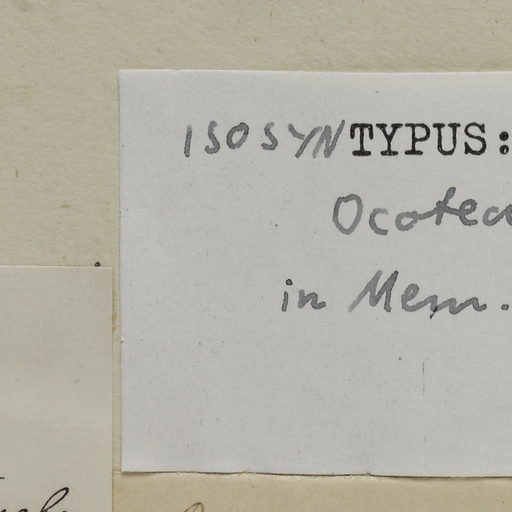 ISOSYNTYPUS:
Ocotea
in Mem.